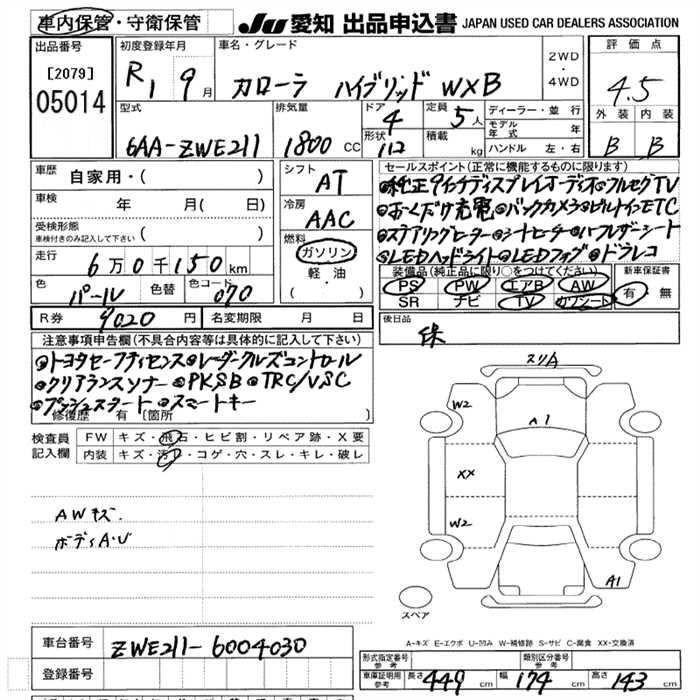 車内保管・守衛保管
JU 愛知 出品申込書 JAPAN USED CAR DEALERS ASSOCIATION
出品番号
[2079]
05014
初度登録年月
R1 9月
車名・グレード
カローラ ハイブリッド W×B
2WD
・
4WD
評価点
4.5
外装 内装
B B
型式
6AA-ZWE211
排気量
1800 CC
ドア
4
形状
112
定員
5人
積載
kg
ディーラー・並行
モデル年式 年
ハンドル 左・右
車歴
自家用・( )
車検
年 月( 日)
受検形態
車検付きのみ記入して下さい ( )
走行
6万0千150km
色
パール
色替
色コード
070
R券
9020円
名変期限 月 日
シフト
AT
冷房
AAC
燃料
ガソリン
軽・油
( ・ )
セールスポイント(正常に機能するものに限ります)
●純正9インチディスプレイオーディオ●フルセグTV
●おくだけ充電●バックカメラ●ビルトインETC
●ステアリングヒーター●シートヒーター●ハーフレザーシート
●LEDヘッドライト●LEDフォグ●ドラレコ
装備品(純正品に限り○をつけてください)
PS PW エアB AW
SR ナビ TV カワシート
新車保証書
有 無
後日品
保
注意事項申告欄(不具合内容等は具体的に記入して下さい)
●トヨタセーフティセンス●レーダークルーズコントロール
●クリアランスソナー●PKSB●TRC/VSC
●プッシュスタート●スマートキー
修復歴 有(箇所 )
検査員
記入欄
FW キズ・飛石・ヒビ割・リペア跡・X要
内装 キズ・汚れ・コゲ・穴・スレ・キレ・破レ
AWキズ
ボディA・U
スリA
W2
A1
XX
W2
A1
スペア
A-キズ E-エクボ U-凹み W-補修跡 S-サビ C-腐食 XX-交換済
車台番号
ZWE211-6004030
登録番号
形式指定番号
参考
類別区分番号
参考
車庫証明用
参考
長さ 449 cm 幅 174 cm 高さ 143 cm